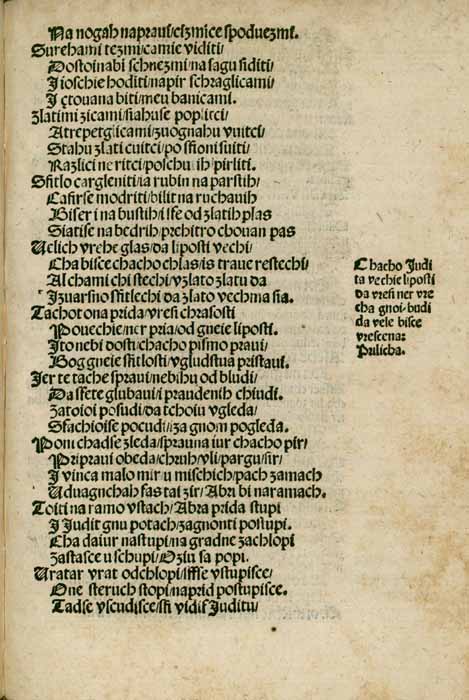 Na nogah napraui/cismice spoduezmi.
Surehami tezmi/camie viditi/
Dostoinabi schnezmi/na sagu siditi/
I ioschie hoditi/napir schraglicami/
I çtouana biti/meu banicami.
Zlatimi zicami/siahuse poplitci/
A trepetglicami/zuognahu vuitci/
Stahu zlati cuitci/po sfioni suiti/
Razlici ne ritci/poschu ih pirliti.
Sfitlo cargleniti/ia rubin na parstih/
Cafirse modriti/bilit na ruchauih
Biser i na bustih/i sse od zlatih plas
Siatise na bedrih/prehitro chouan pas
Uelich vrehe glas/da liposti vechi/
Cha bisce chacho chlas/is traue restechi/
Al chami chi stechi/vzlato zlatu da
I zuarsno sfitlechi da zlato vechma sia.
Tachot ona prida/vresi chrasosti
Pouechie/ner pria/od gneie liposti.
Ito nebi dosti/chacho pismo praui/
Bog gneie sfitlosti/vgludstua pristaui.
Jer te tache spraui/nebihu od bludi/
Da sfete glubaui/i praudenih chiudi.
Zatoioi posudi/da tchoiu vgleda/
Sfachioise pocudi/iza gnom pogleda.
Poni chadse zleda/sprauna iur chacho pir/
Pripraui obeda/chruh/vli/pargu/sir/
I vinca malo mir/u mischich/pach zamach
Uduagnchah sas tai zir/Abri bi naramach.
Toiti na ramo vstach/Abra prida stupi
I Judit gnu potach/zagnonti postupi.
Cha daiur nastupi/na gradne zachlopi
Zastasce u schupi/Oziu sa popi.
Uratar vrat odchlopi/issse vstupisce/
One steruch stopi/naprid postupisce.
Tadse vscudisce/sfi vidif Juditu/
Chacho Judi
ta vechie liposti
da vresi ner vre
cha gnoi. budi
da vele bisce
vrescena:
Prilicha.